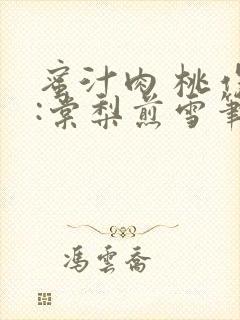 蜜汁肉桃作
:棠梨煎雪筆
馮雲喬